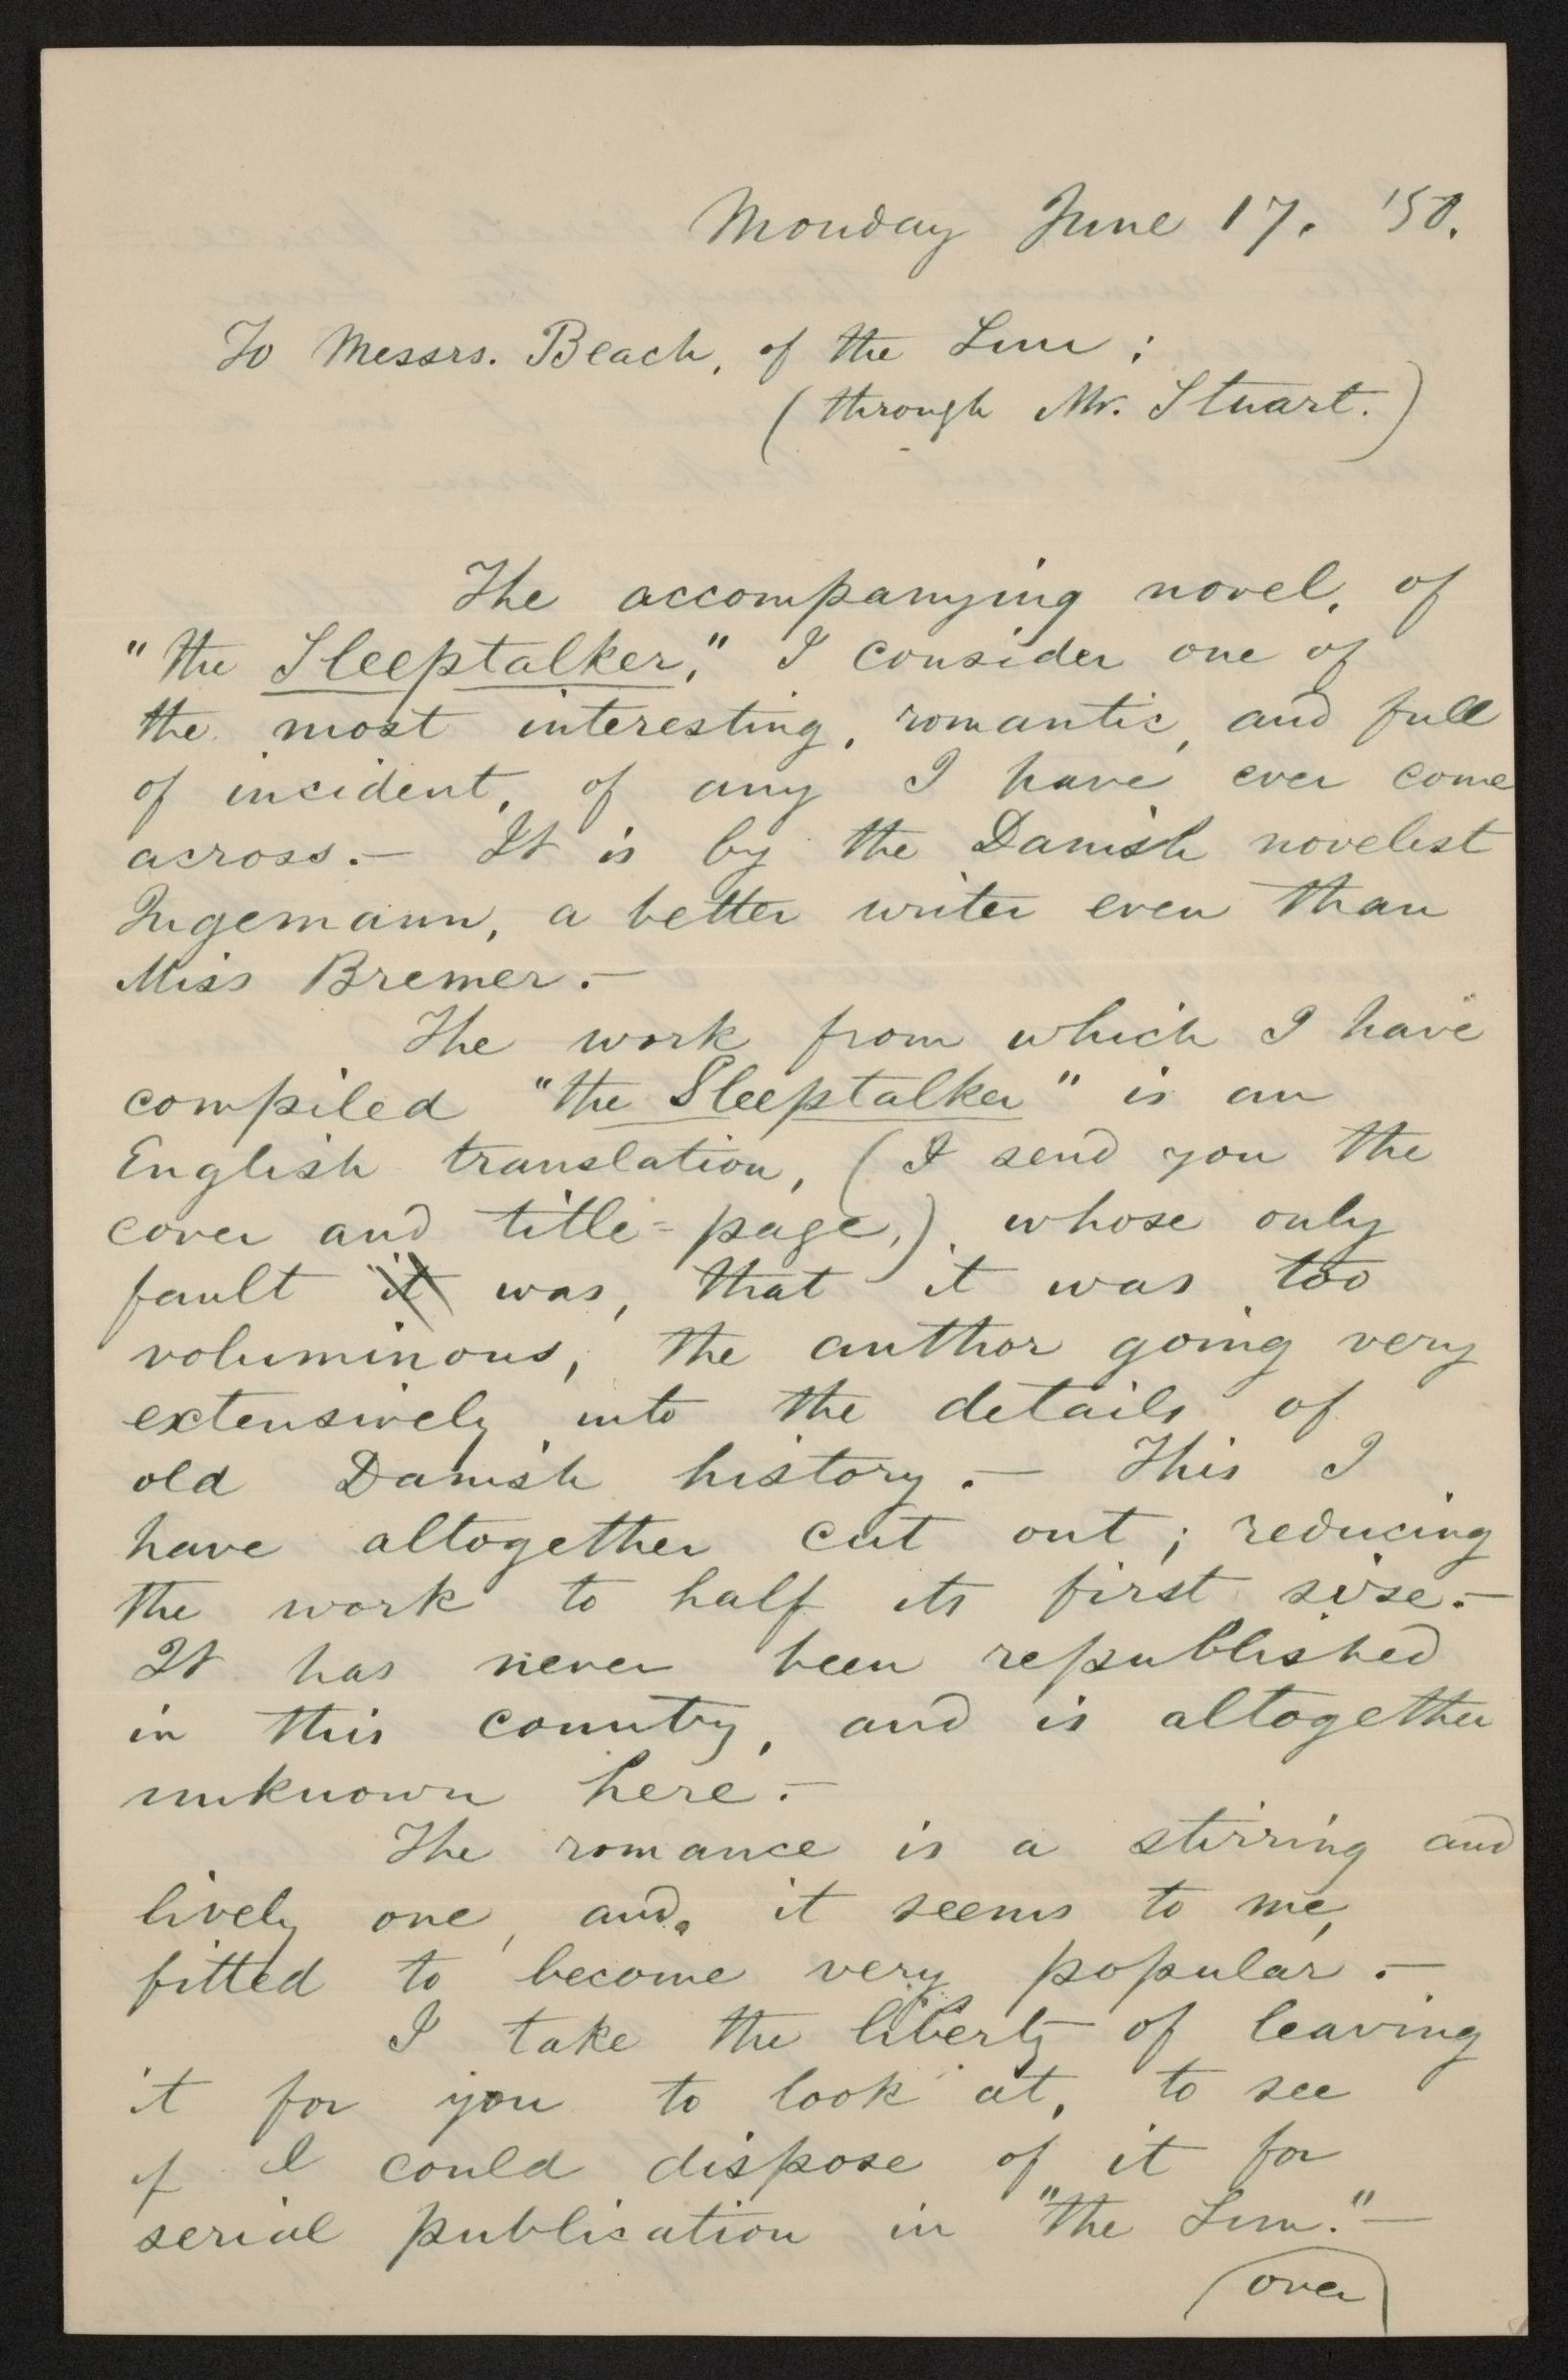 Monday June 17. '50.
To Messrs. Beach, of the Sun;
(through Mr. Stuart.)
The accompanying novel, of
"the Sleeptalker," I consider one of
the most interesting, romantic, and full
of incident, of any I have ever come
across.— It is by the Danish novelist
Ingemann, a better writer even than
Miss Bremer.—
The work from which I have
compiled "the Sleeptalker" is an
English translation, (I send you the
cover and title-page,) whose only
fault it was, that it was too
voluminous, the author going very
extensively into the details of
old Danish history.— This I
have altogether cut out; reducing
the work to half its first size.—
It has never been republished
in this country, and is altogether
unknown here.—
The romance is a stirring and
lively one, and, it seems to me,
fitted to become very popular.—
I take the liberty of leaving
it for you to look at, to see
if I could dispose of it for
serial publication in "the Sun."—
(over)